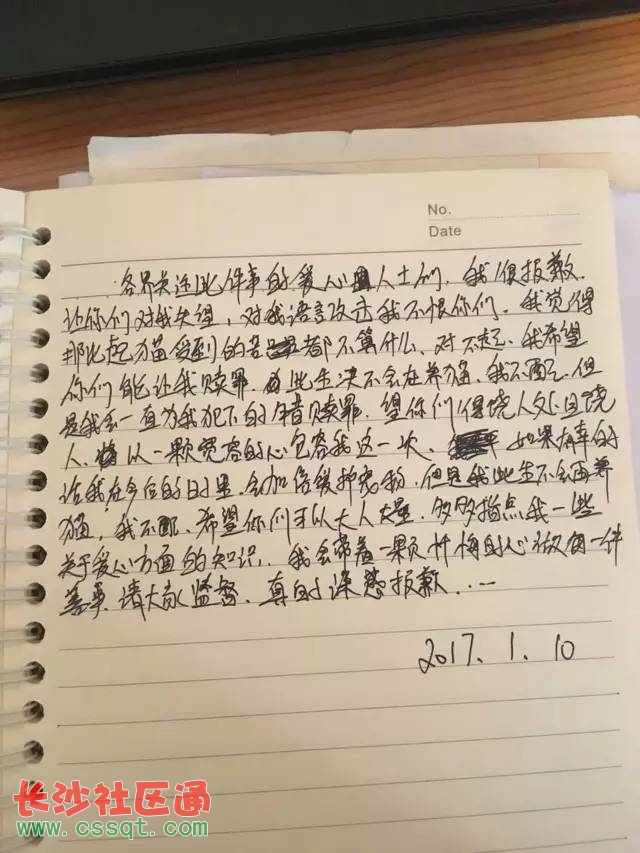 No.
Date
各界关注此件事的爱心人士们，我很报歉.
让你们对我失望，对我语言攻击我不恨你们。我觉得
那比起猫受到的苦都不算什么、对不起、我希望
你们能让我赎罪. 此生决不会在养猫、我不配、但
是我会一直为我犯下的错赎罪. 望你们得饶人处且饶
人、以一颗宽容的心包容我这一次、如果有幸的
话我在今后的日里.会加倍
但是我此生不会再养
猫，我不配、希望你们可以大人大量. 多多指点我一些
关于爱心方面的知识. 我会带着一颗忏悔的心做每一件
善事. 请大家监督. 真的深感报歉. . 一
2017. 1. 10
长沙社区通
www.cssqt.com